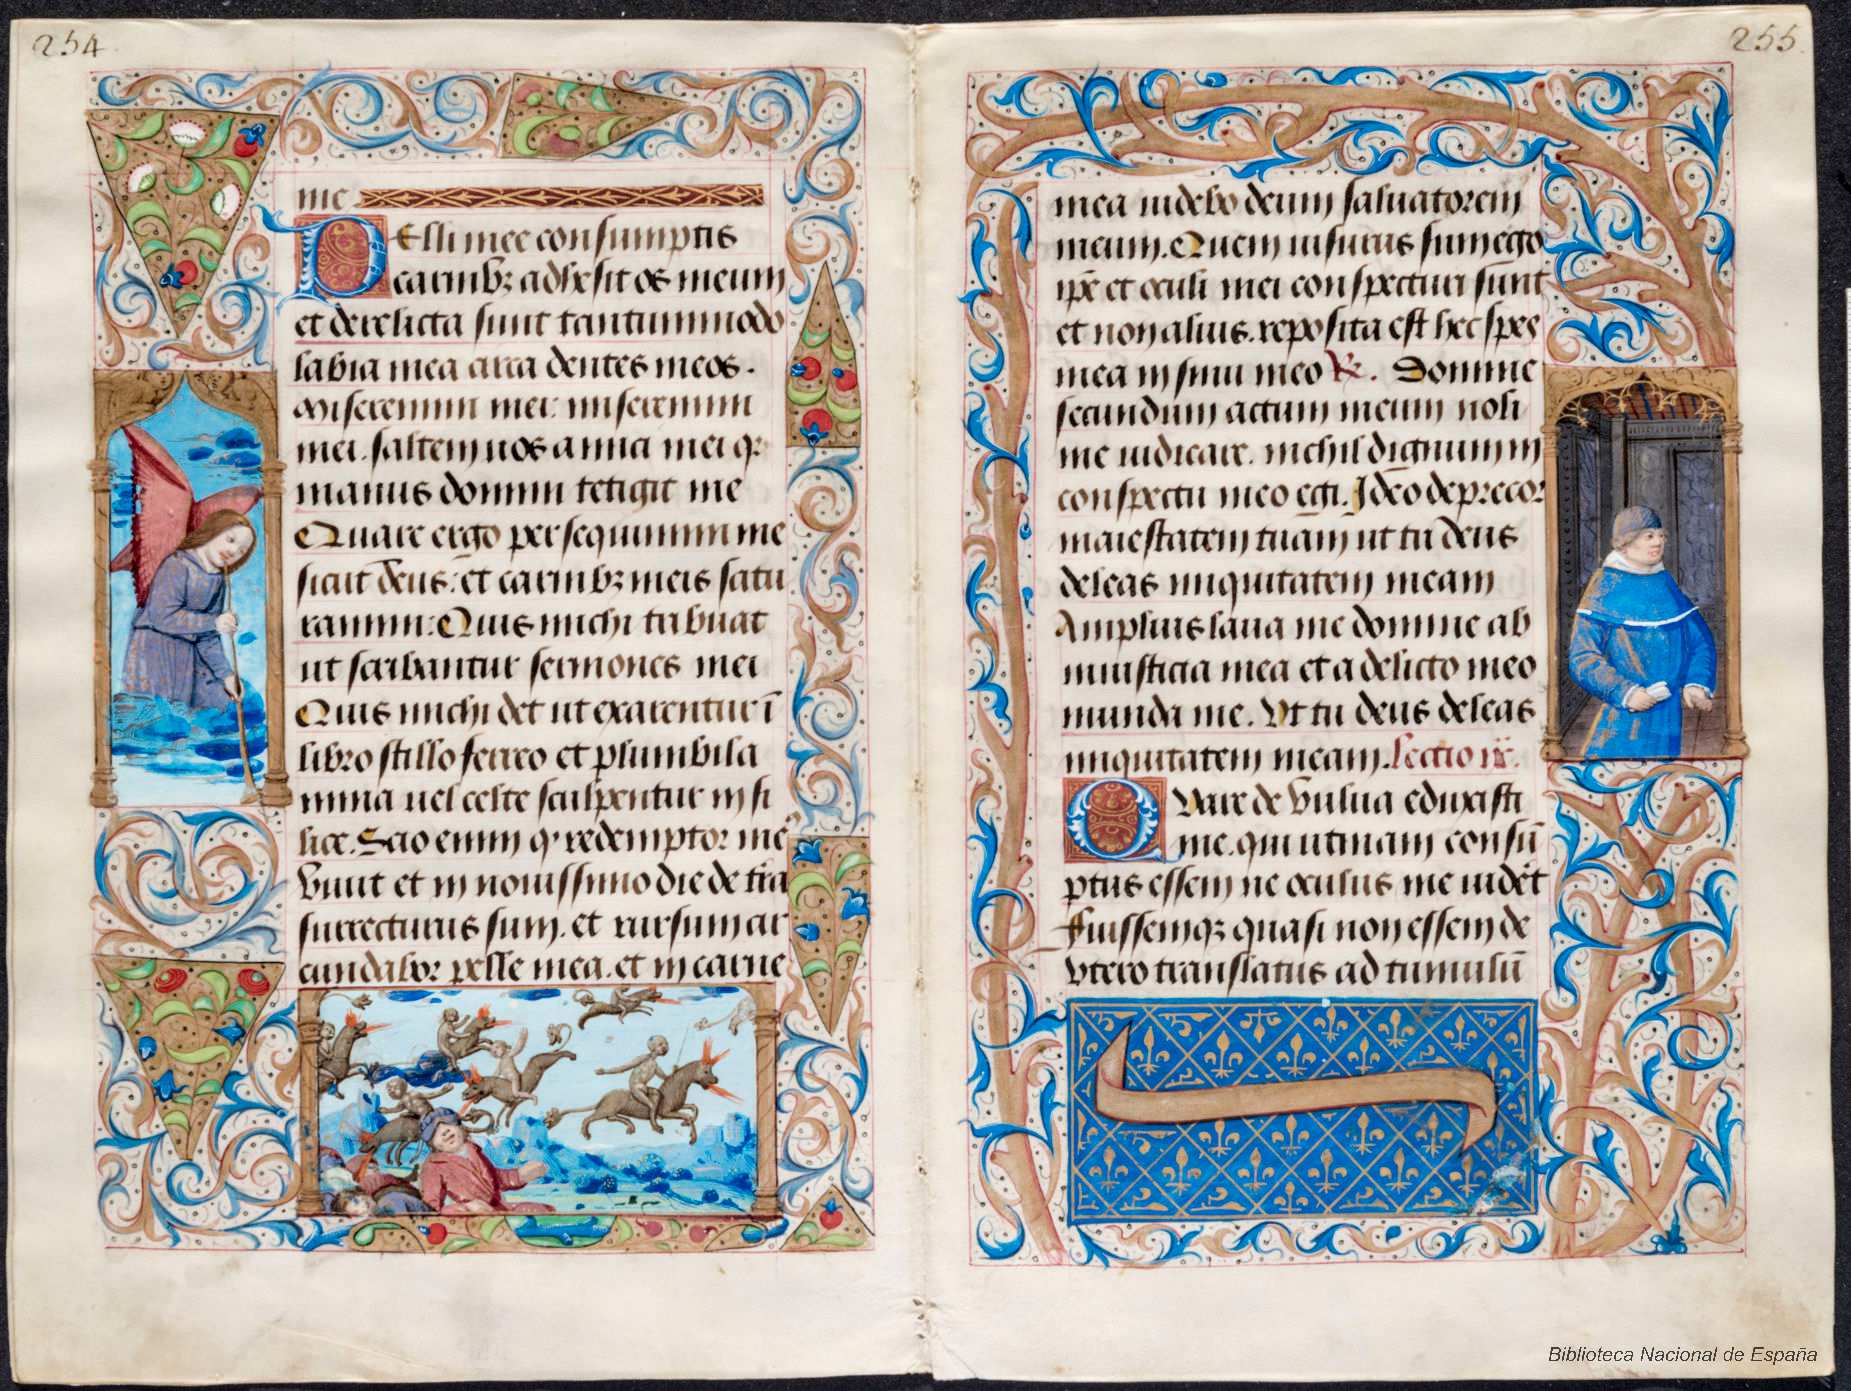 254
me
Pelli mee consumptis
carnibꝫ adhesit os meum
et derelicta sunt tantummodo
labia mea circa dentes meos.
Miseremini mei: miseremini
mei. saltem uos amici mei qꝛ
manus domini tetigit me
Quare ergo persequimini me
sicut deus: et carnibꝫ meis satu
ramini: Quis michi tribuat
ut scribantur sermones mei
Quis michi det ut exarentur ī
libro stillo ferreo et plumbi la
mina uel celte sculpentur in si
lice. Scio enim qꝫ redemptor me᷒
viuit et in nouissimo die de tr̄a
surrecturus sum. et rursum cir
cundabor pelle mea. et in carne
255
mea uidebo deum saluatorem
meum. Quem uisurus sum ego
ip̄e et oculi mei conspecturi sunt
et non alius. reposita est hec spes
mea in sinu meo ℟. Domine
secundum actum meum noli
me iudicare. nichil dignum in
conspectu meo egi. Ideo deprecor
maiestatem tuam ut tu deus
deleas iniquitatem meam
Amplius laua me domine ab
iniusticia mea et a delicto meo
munda me. Vt tu deus deleas
iniquitatem meam. Lectio ix.
Quare de vulua eduxisti
me. qui utinam consū
ptus essem ne oculus me uidēt
Fuissemqꝫ quasi non essem de
vtero translatus ad tumulū
Biblioteca Nacional de España